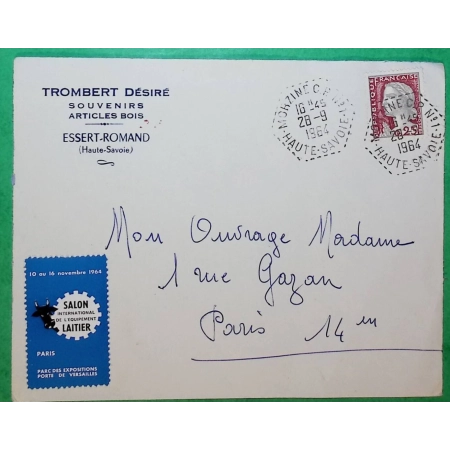 TROMBERT DÉSIRÉ
SOUVENIRS
ARTICLES BOIS
ESSERT-ROMAND
(Haute-Savoie)
MORZINE C.P. N°1
16 H 45
28-9
1964
HAUTE-SAVOIE
REPUBLIQUE FRANÇAISE
0.25
MORZINE C.P. N°1
16 H 45
28-9
1964
HAUTE-SAVOIE
Mon Ouvrage Madame
1 rue Gazan
Paris 14em
10 au 16 novembre 1964
SALON
INTERNATIONAL
DE L'ÉQUIPEMENT
LAITIER
PARIS
PARC DES EXPOSITIONS
PORTE DE VERSAILLES